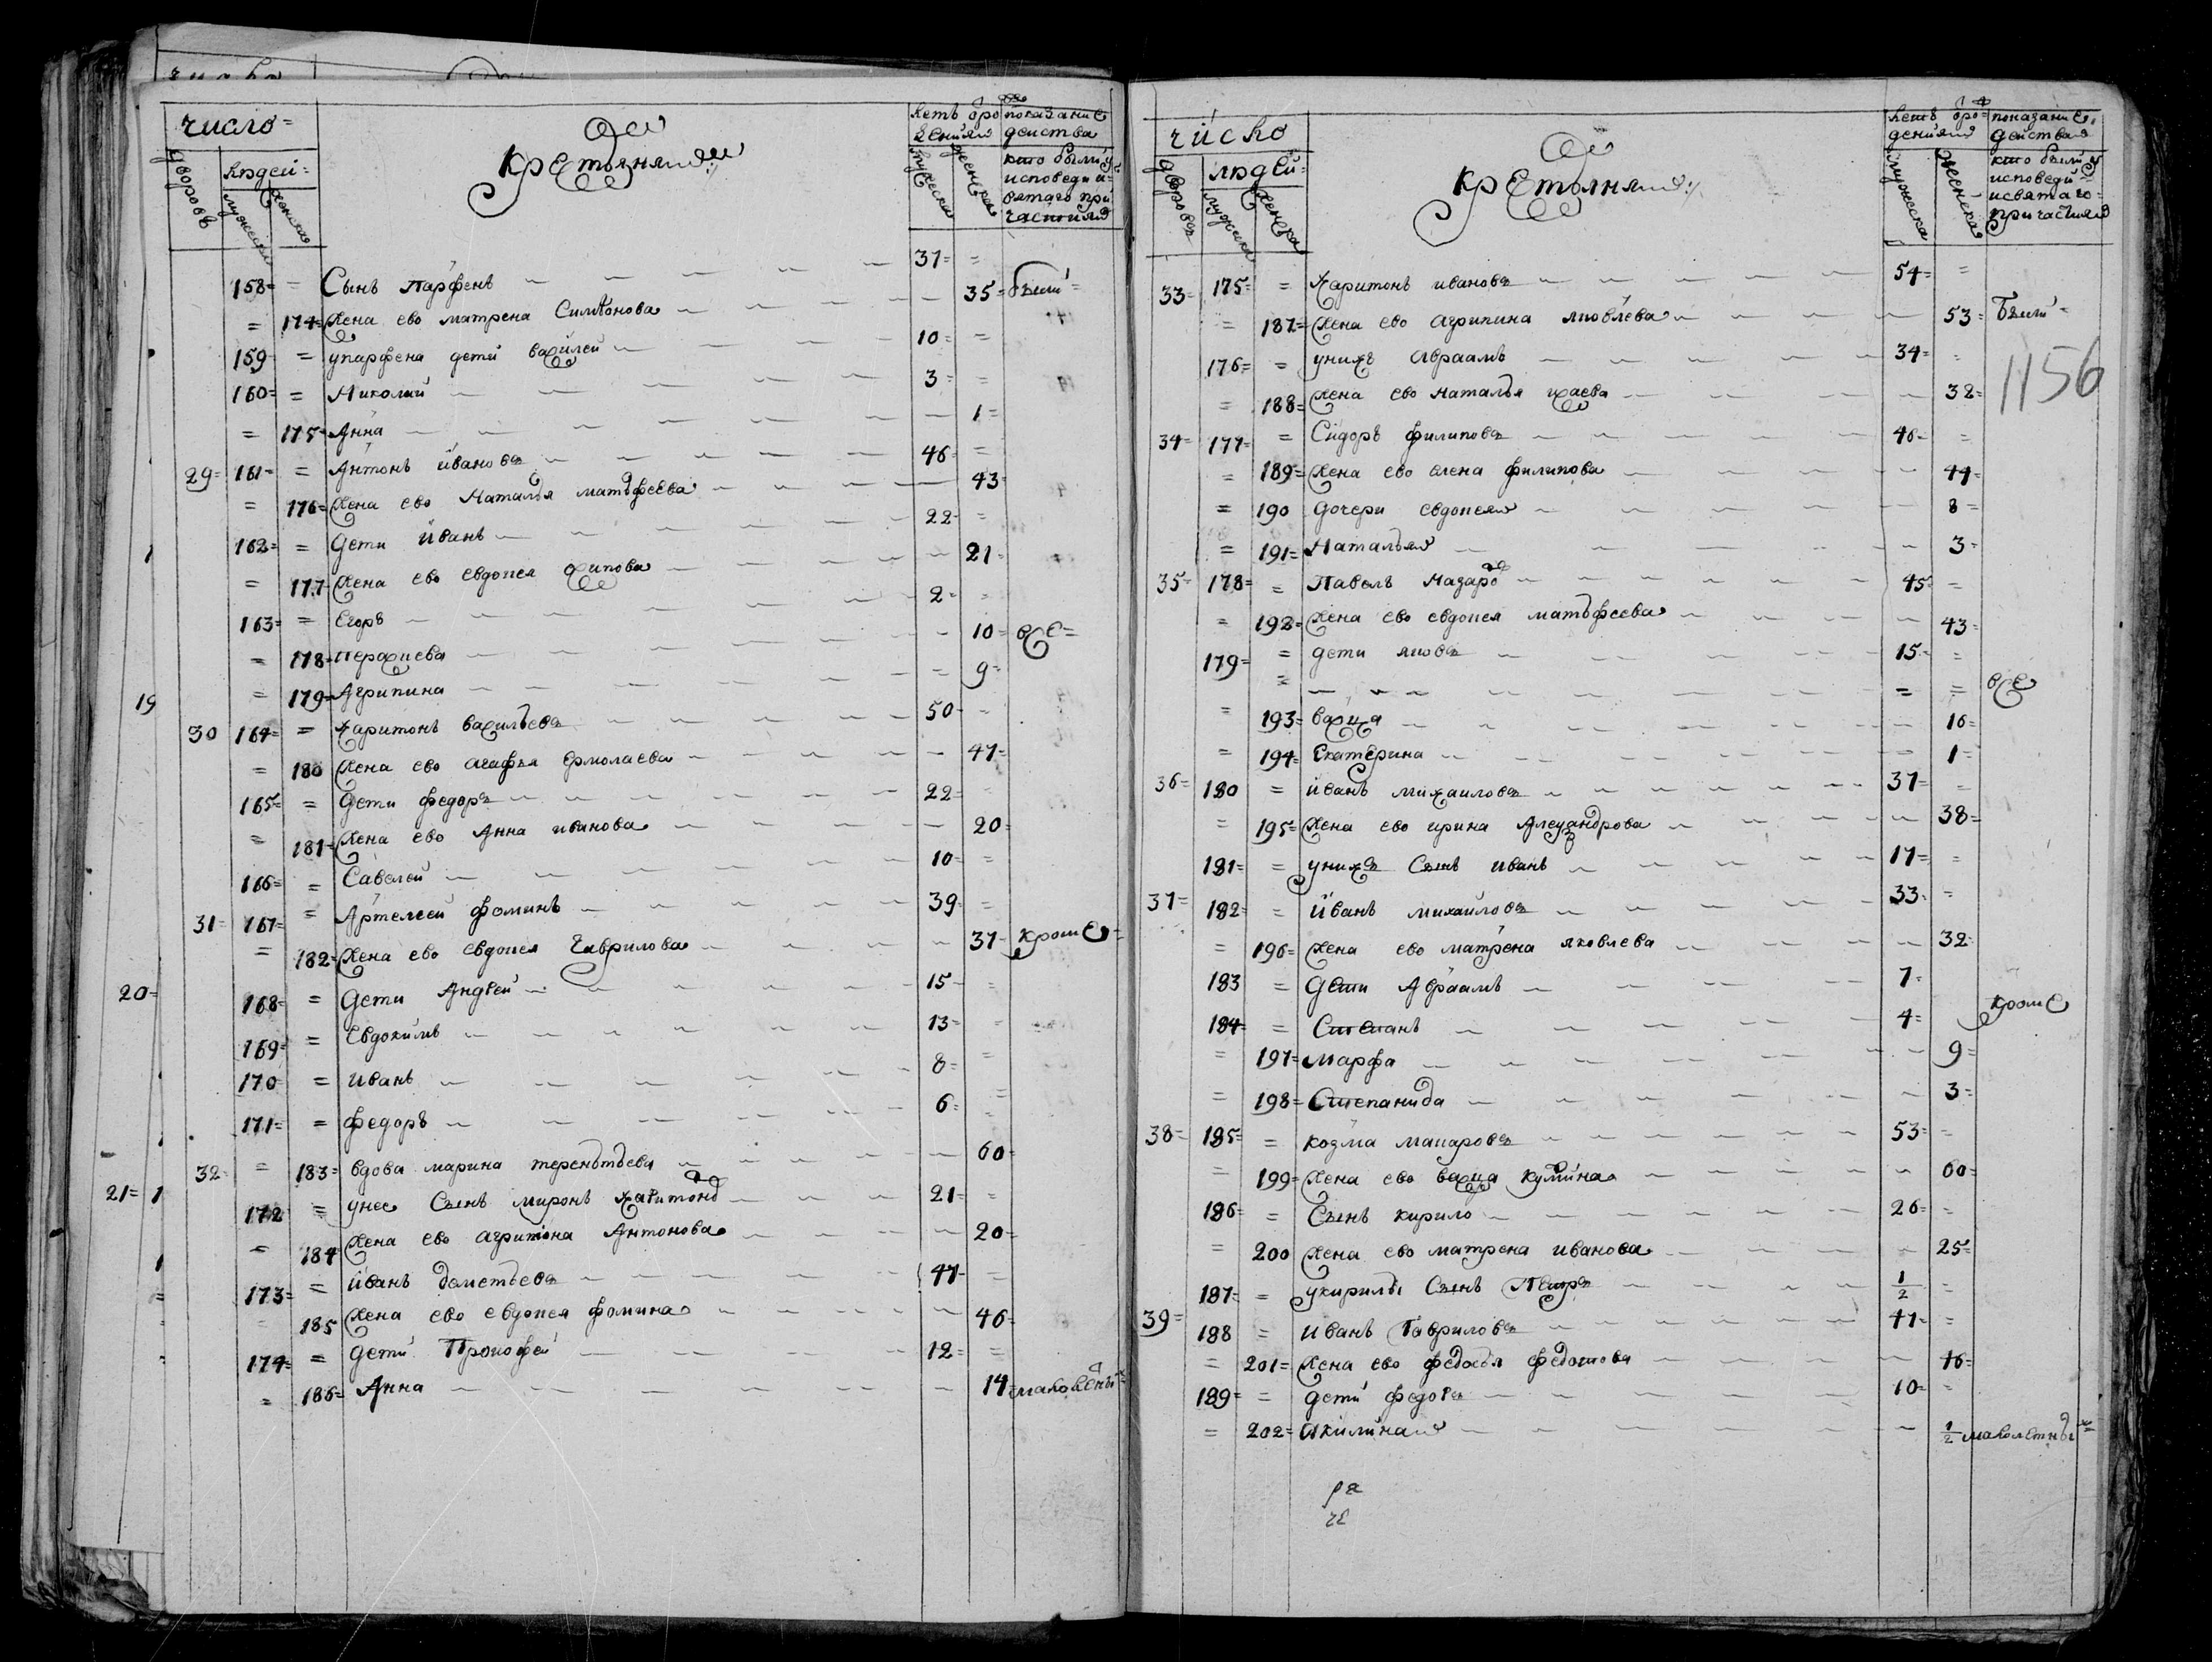 число
дворовъ
людей
мужеска
женска
крестьяня
летъ от рождения
мужеска
женска
показание действа
кто былъ у исповеди и святаго причастия
158 = Сынъ Парфенъ 37 =
= 174 жена ево матрена Симионова = 35 были
159 = упарфена дети василей 10 =
160 = Николай 3 =
= 175 Анна 1
29 161 = Антонъ ивановъ 46 =
= 176 жена ево Наталья матьфеева 43
162 = дети иванъ 22 =
= 177 жена ево евдокея осипова 21
163 = Егоръ 2 =
= 178 перасцева 10 все
= 179 Агрипина 9
30 164 = Харитонъ васильевъ 50
= 180 жена ево агафья Ермолаева 47
165 = дети федоръ 22
= 181 жена ево Анна иванова 20
166 = Савелей 10 =
31 167 = Артемей фоминъ 39 =
= 182 жена ево евдокея Гаврилова 37 кроме
168 = дети Андрей 15
169 = Евдокимъ 13
170 = иванъ 8 =
171 = федоръ 6
32 = 183 вдова марина терентьева 60
172 = унее Сынъ миронъ харитоновъ 21 =
= 184 жена ево агрипина Антонова 20
173 = иванъ дометьевъ 47 =
= 185 жена ево евдокея фомина 46
174 = дети Прокофей 12 =
= 186 Анна 14 малолетны
19
20
21 1
чиско
дворовъ
людей
мужеска
женска
крестьяня
летъ от рождения
мужеска
женска
показание действа
кто былъ у исповеди и святаго причастия
33 175 = Харитонъ ивановъ 54 =
= 187 жена ево агрипина яковлева 53 были
1156
176 = унихъ Авраамъ 34
= 188 жена ево наталья исаева 32
34 177 = Сидоръ филиповъ 46 =
= 189 жена ево елена филипова 44
= 190 дочери евдокея 8
= 191 Наталья 3
35 178 = Павелъ Назаровъ 45 =
= 192 жена ево евдокея матьфеева 43
179 = дети яковъ 15 =
= = = все
= 193 васца 16
= 194 Екатерина 1
36 180 = иванъ михаиловъ 37
= 195 жена ево ирина Алеѯандрова 38
181 = унихъ Сынъ иванъ 17
37 182 = иванъ михайловъ 33 =
= 196 жена ево матрена яковлева 32
183 = дети Авраамъ 7
184 = Степанъ 4 кроме
= 197 марфа 9
= 198 Степанида 3
38 185 = козма макаровъ 53
= 199 жена ево васца кузмина 60
186 = Сынъ кирило 26 =
= 200 жена ево матрена иванова 25
187 = укирилы Сынъ Петръ 1/2
39 188 = иванъ Гавриловъ 47 =
= 201 жена ево федосья федотова 46
189 = дети федоръ 10
= 202 Акилина 1/2 малолетны